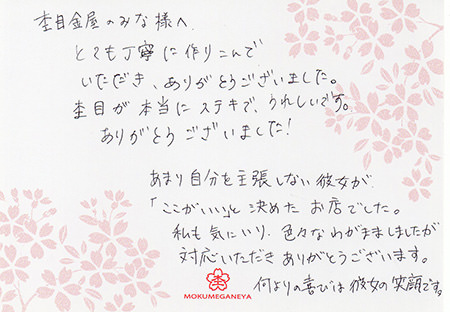 杢目金屋のみな様へ
とても丁寧に作りこんで
いただき、ありがとうございました。
杢目が本当にステキで、うれしいです。
ありがとうございました!
あまり自分を主張しない彼女が
「ここがいい」と決めたお店でした。
私も気にいり、色々なわがまましましたが
対応いただきありがとうございます。
何よりの喜びは彼女の笑顔です。
MOKUMEGANEYA